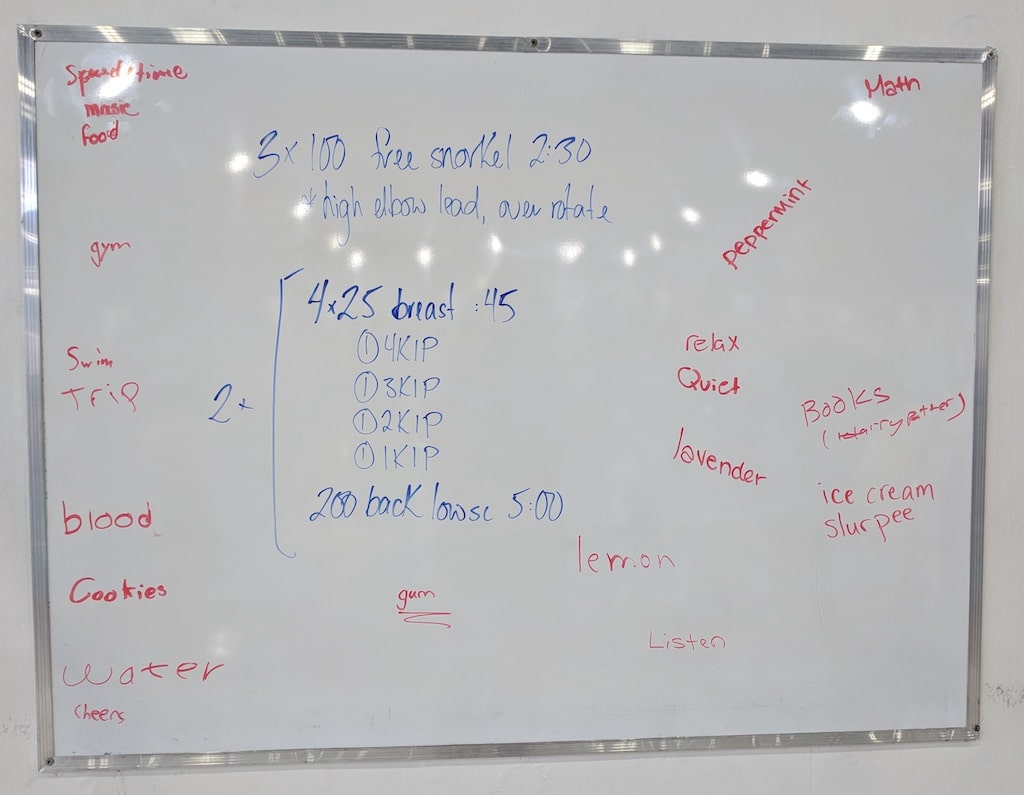 Spend time
music
food
Math
3 x 100 free snorkel 2:30
* high elbow lead, over rotate
peppermint
gym
4x25 breast :45
① 4K1P
① 3K1P
① 2K1P
① 1K1P
200 back low sc 5:00
2x
relax
Quiet
lavender
Swim
Trip
Books
(harry potter)
ice cream
slurpee
blood
lemon
Cookies
gum
Listen
water
Cheers